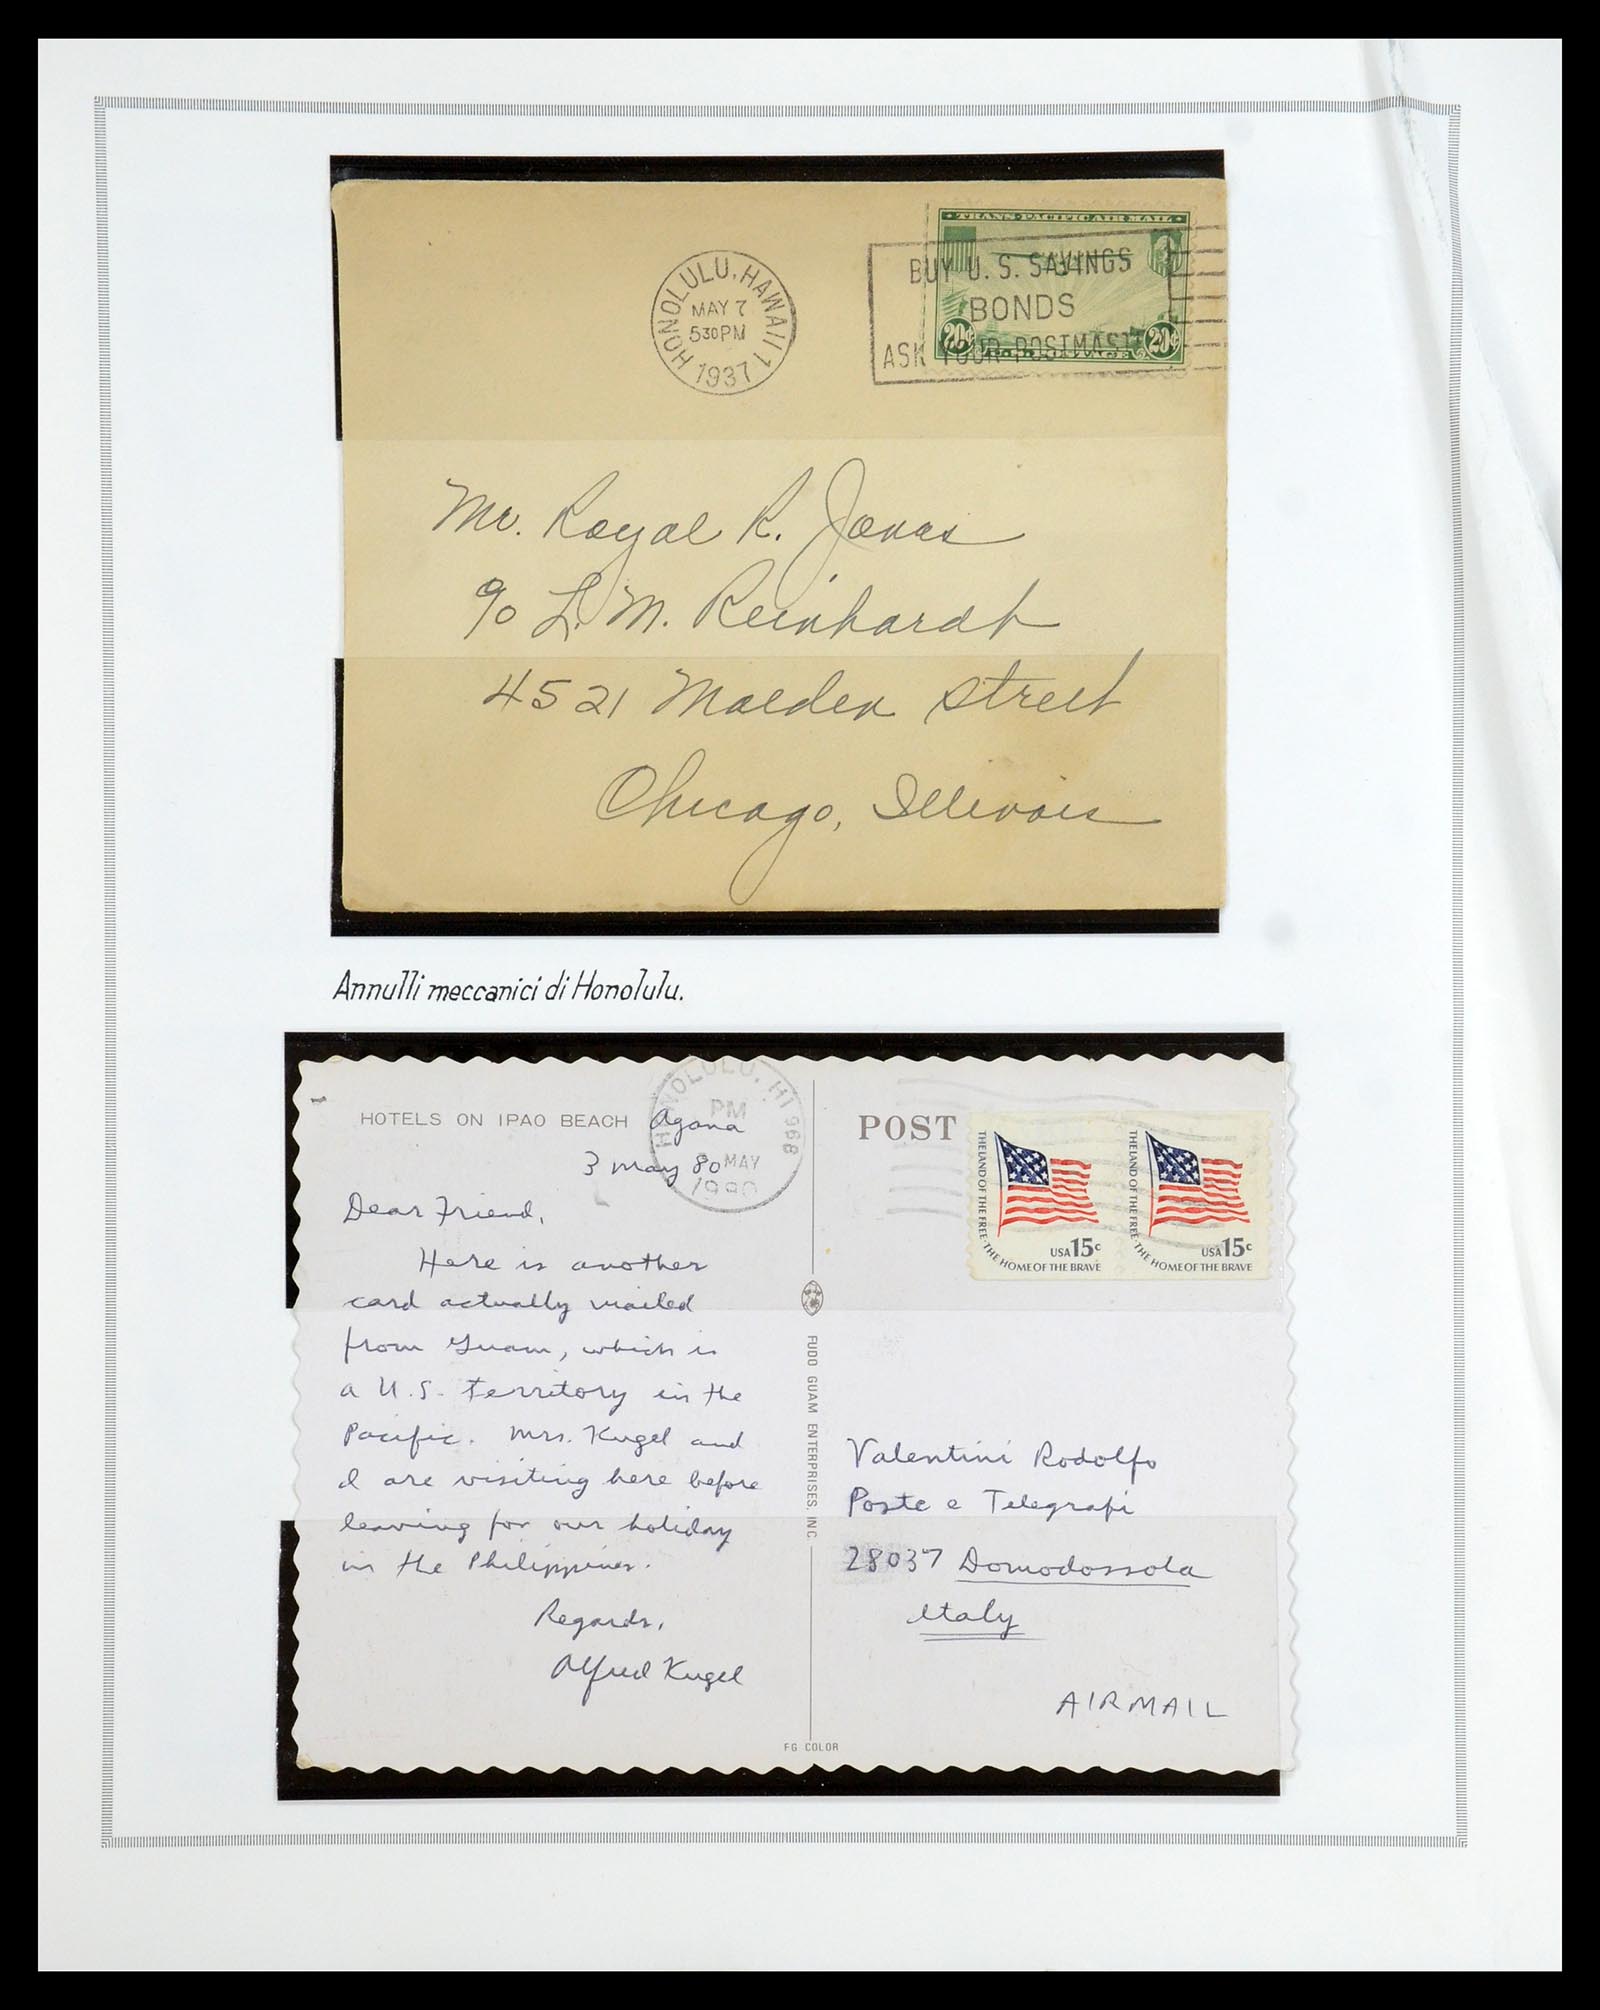 TRANS-PACIFIC AIR MAIL
HONOLULU, HAWAII 1
MAY 7
530PM
1937
BUY U. S. SAVINGS
BONDS
ASK YOUR POSTMAST
20¢ U.S. POSTAGE 20¢
Mr. Royal R. Jonas
c/o L. M. Reinhardt
4521 Malden Street
Chicago, Illinois
Annulli meccanici di Honolulu.
HOTELS ON IPAO BEACH Agana
3 May 80
HONOLULU, HI 968
PM
MAY
1980
Dear Friend,
Here is another
card actually mailed
from Guam, which is
a U.S. territory in the
Pacific. Mrs. Kugel and
I are visiting here before
leaving for our holiday
in the Philippines.
Regards,
Alfred Kugel
FUDO GUAM ENTERPRISES. INC
FG COLOR
POST
THE LAND OF THE FREE·THE HOME OF THE BRAVE
USA 15c
THE LAND OF THE FREE·THE HOME OF THE BRAVE
USA 15c
Valentini Rodolfo
Poste e Telegrafi
28037 Domodossola
Italy
AIRMAIL